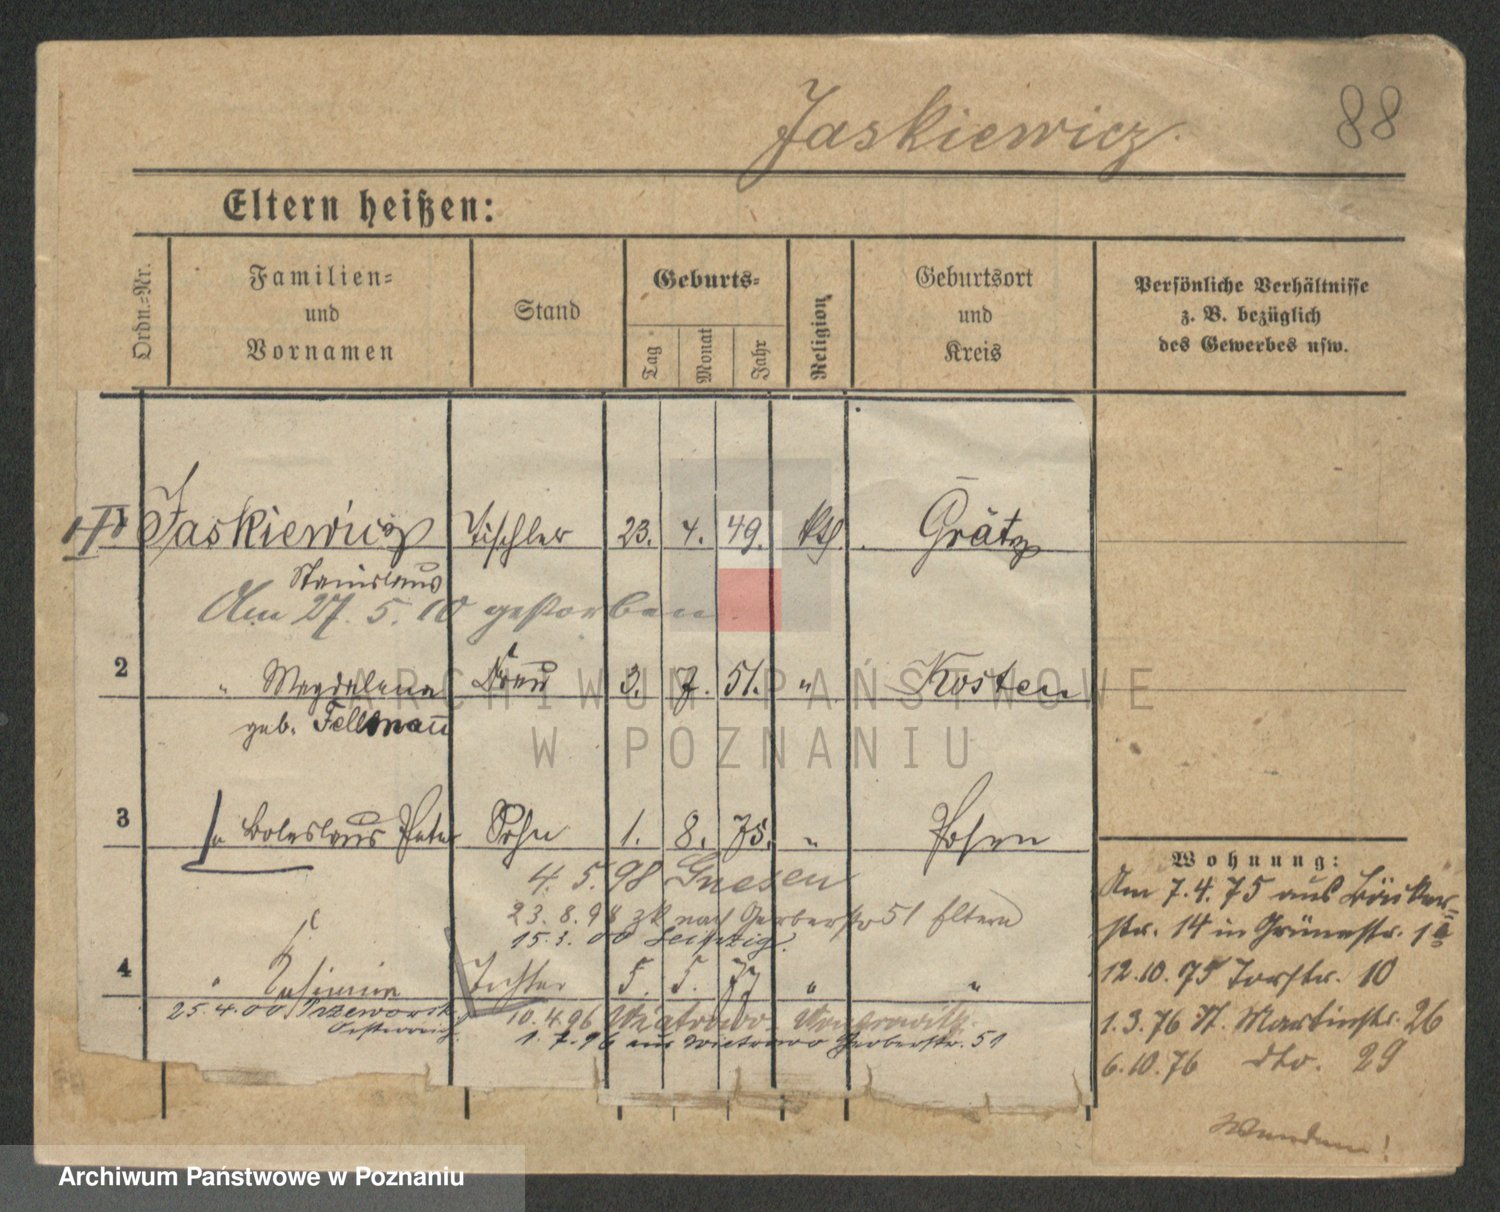 Jaskiewicz.
88
Eltern heißen:
Ordn.-Nr.
Familien-
und
Vornamen
Stand
Geburts-
Tag
Monat
Jahr
Religion
Geburtsort
und
Kreis
Persönliche Verhältnisse
z. B. bezüglich
des Gewerbes usw.
Jaskiewicz Tischler 23. 4. 49. kth. Grätz
Stanislaus
Am 27. 5. 10 gestorben
2 " Magdalena Frau 3. 7. 51. " Kosten
geb. Fellmann
3 " Boleslaus Peter Sohn 1. 8. 75. " Posen
4. 5. 98 Gnesen
23. 8. 98 zk nach Gerberstr 51 Eltern
15. 3. 00 Leipzig.
4 " Kasimira Tochter 5. 5. 77 " "
25. 4. 00 Przeworsk
Oesterreich.
10. 4. 96 Wiatrowo Wongrowitz.
1. 7. 96 aus Wiatrowo Gerberstr. 51
Wohnung:
Am 7. 4. 75 aus Bäcker-
str. 14 in Grünestr. 1a
12. 10. 75 Torstr. 10
1. 3. 76 St. Martinstr. 26
6. 10. 76 dto. 29
Wenden!
ARCHIWUM PAŃSTWOWE
W POZNANIU
Archiwum Państwowe w Poznaniu